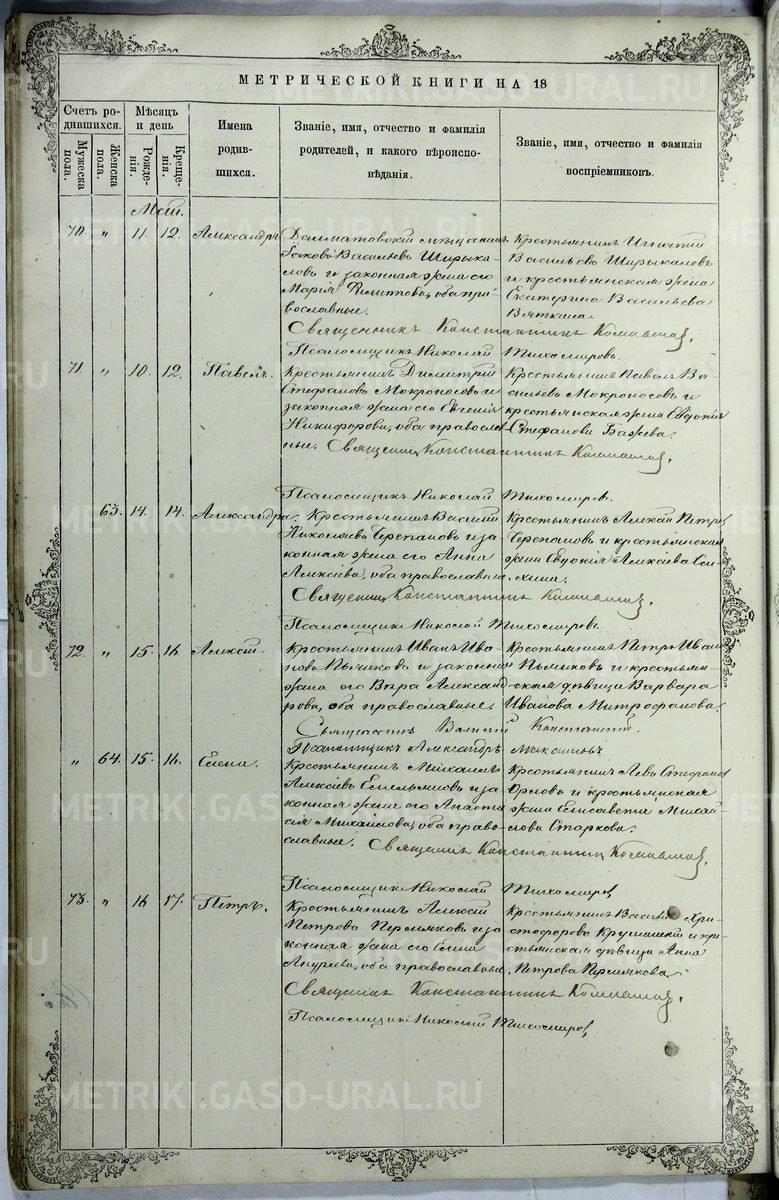 МЕТРИЧЕСКОЙ КНИГИ НА 18
Счетъ родившихся.
Мужеска пола.
Женска пола.
Мѣсяцъ и день
Рожденія.
Крещенія.
Имена родившихся.
Званіе, имя, отчество и фамилія родителей, и какого вѣроисповѣданія.
Званіе, имя, отчество и фамилія воспріемниковъ.
Май.
70. " 11. 12. Александръ
Далматовскій мѣщанинъ
Іаковъ Васильевъ Ширыкаловъ
и законная жена его
Марія Филиппова, оба православные.
Крестьянинъ Игнатій
Васильевъ Ширыкаловъ
и крестьянская жена
Екатерина Васильева
Вяткина.
Священникъ Константинъ
Псаломщикъ Николай Тихомировъ.
71. " 10. 12. Павелъ.
Крестьянинъ Димитрій
Стефановъ Мокроносовъ и
законная жена его Евгенія
Никифорова, оба православные.
Крестьянинъ Павелъ Васильевъ
Мокроносовъ и
крестьянская жена Евдокія
Стефанова Бажева.
Священникъ Константинъ
Псаломщикъ Николай Тихомировъ.
63. 14. 14. Александра.
Крестьянинъ Василій
Николаевъ Черепановъ и законная
жена его Анна
Алексѣева, оба православные.
Крестьянинъ Алексѣй Петровъ
Черепановъ и крестьянская
жена Евдокія Алексѣева
Священникъ Константинъ
Псаломщикъ Николай Тихомировъ.
72. " 15. 16. Алексѣй.
Крестьянинъ Иванъ Ивановъ
и законная
жена его Вѣра Александрова,
оба православные.
Крестьянинъ Петръ Ивановъ
и крестьянская
дѣвица Варвара
Иванова Митрофанова.
Священникъ Константинъ
Псаломщикъ Александръ
" 64. 15. 16. Елена.
Крестьянинъ Михаилъ
Алексѣевъ Емельяновъ и законная
жена его Анастасія
Михайлова, оба православные.
Крестьянинъ Левъ Стефановъ
Орловъ и крестьянская
жена Елисавета Михайлова
Старкова.
Священникъ Константинъ
Псаломщикъ Николай Тихомировъ
73. " 16 17. Петръ.
Крестьянинъ Алексѣй
Петровъ Пермяковъ и законная
жена его Елена
Андреева, оба православные.
Крестьянинъ Василій Христофоровъ
и крестьянская
дѣвица Анна
Петрова Пермякова.
Священникъ Константинъ
Псаломщикъ Николай Тихомировъ
METRIKI.GASO-URAL.RU